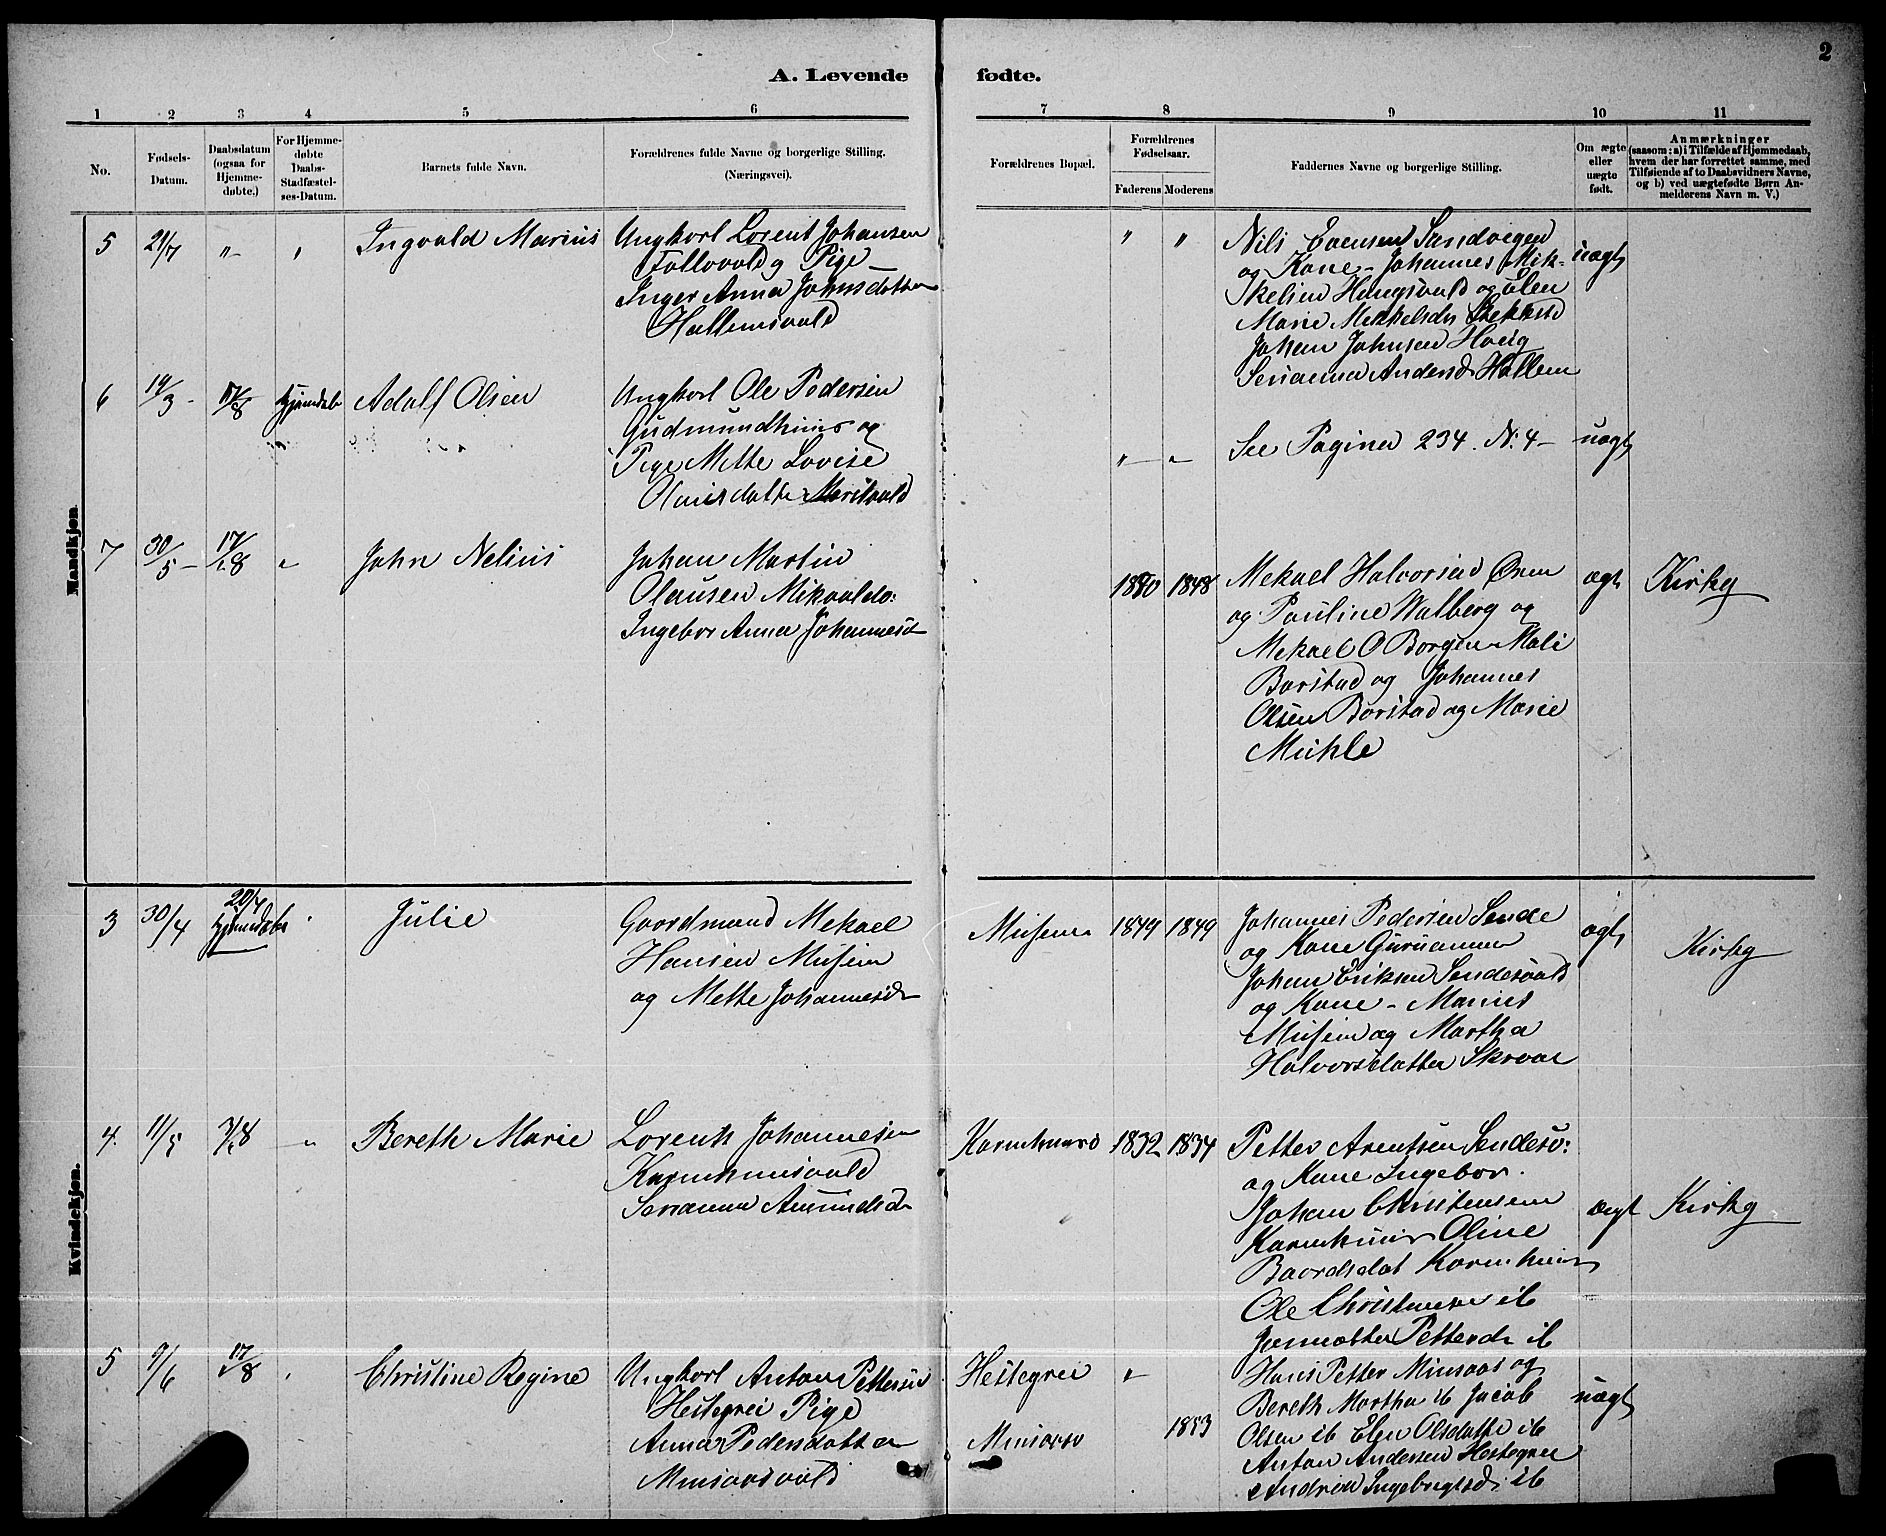 2
A. Levende fødte.
1 2 3 4 5 6 7 8 9 10 11
No.
Fødsels-
Datum.
Daabsdatum
(ogsaa for
Hjemme-
døbte.)
For Hjemme-
døbte
Daabs-
Stadfæstel-
ses-Datum.
Barnets fulde Navn.
Forældrenes fulde Navne og borgerlige Stilling.
(Næringsvei).
Forældrenes Bopæl.
Forældrenes
Fødselsaar.
Faderens Moderens
Faddernes Navne og borgerlige Stilling.
Om ægte
eller
uægte
født.
Anmærkninger
(saasom: a) i Tilfælde af Hjemmedaab,
hvem der har forrettet samme, med
Tilføiende af to Daabsvidners Navne,
og b) ved uægtefødte Børn An-
melderens Navn m. V.)
Mandkjøn.
5 21/7 " " Ingvald Marius
Ungkarl Lorent Johansen
Pige
Inger Anna Johnsdatter
Hallemsvald
" "
Nils Evensen Sandvigen
og Kone - Johannes Mik-
kelsen og Elen
Marie Mekkelsdr
Johan Johnsen
Serianna Andersd Hallem
uægt
6 19/3 17/8 Hjemdøbt Adolf Olsen
Ungkarl Ole Pedersen
og
Pige Mette Lovise
" "
See Pagina 234. N. 4 -
uægt
7 30/5 - 17/8 " John Nelius
Johan Martin
Olausen
Ingebor Anna Johannesd
1848
Mekael Halvorsen
og Pauline Walberg og
Mekael O Borgen Mali
Barstad og Johannes
Olsen Barstad og Marie
Mikle
ægt Kirky
Kvindekjøn.
3 30/4 20/7
Hjemdøbt
Julie
Gaardmand Mekael
Hansen
og Mette Johannesd
1849 1849
Johannes Pedersen Sende
og Kone
Johan Eriksen Sendesvald
og Kone - Marius
og Martha
Halvorsdatter
ægt Kirky
4. 11/5 " Bereth Marie
Lorents Johannesen
Serianna Amundsd
1832 1834
Petter Arentsen Sendesv:
og Kone Ingebor.
Johan Christensen
Oline
Baardsdat
Ole Christensen ib
Pettersd ib
ægt Kirky
5 9/6 17/8 " Christine Regine
Ungkarl Anton Pettersen
Hestegrei Pige
Anna Pedersdatter
Minsaasvald
Hestegrei "
Minsaas 1853
Hans Petter Minsaas og
Bereth Martha ib Jacob
Olsen ib Elen Olsdatte ib
Anton Andersen Hestegrei
Ingebrigtsd. ib
uægt